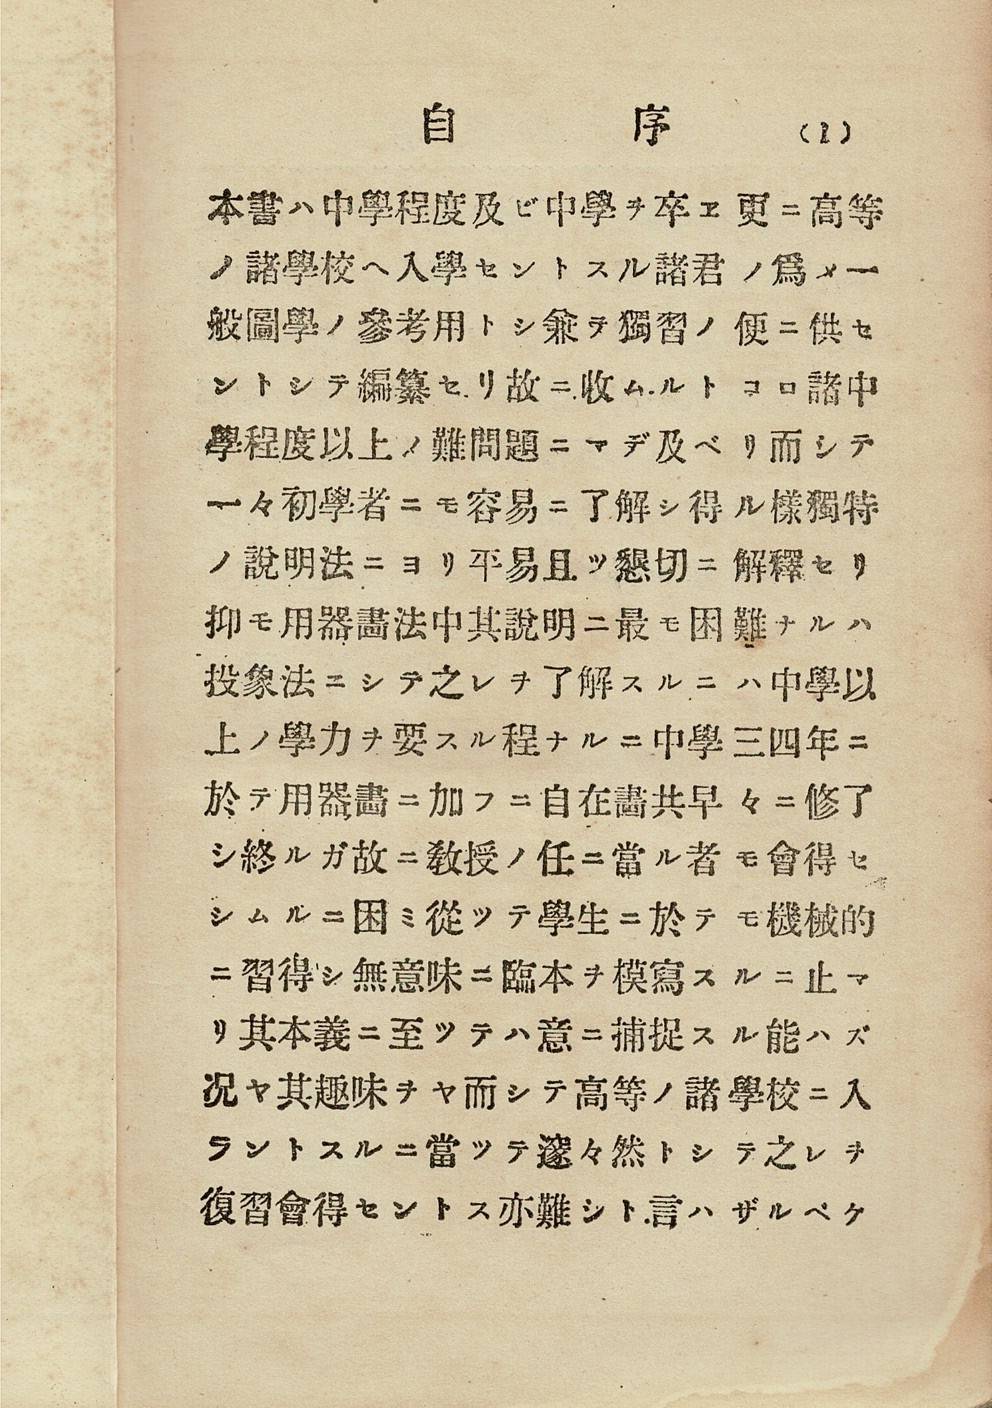 自序 (1)
本書ハ中學程度及ビ中學ヲ卒ヱ更ニ高等
ノ諸學校ヘ入學セントスル諸君ノ爲メ一
般圖學ノ參考用トシ兼テ獨習ノ便ニ供セ
ントシテ編纂セリ故ニ收ムルトコロ諸中
學程度以上ノ難問題ニマデ及ベリ而シテ
一々初學者ニモ容易ニ了解シ得ル樣獨特
ノ說明法ニヨリ平易且ツ懇切ニ解釋セリ
抑モ用器畵法中其說明ニ最モ困難ナルハ
投象法ニシテ之レヲ了解スルニハ中學以
上ノ學力ヲ要スル程ナルニ中學三四年ニ
於テ用器畵ニ加フニ自在畵共早々ニ修了
シ終ルガ故ニ敎授ノ任ニ當ル者モ會得セ
シムルニ困ミ從ツテ學生ニ於テモ機械的
ニ習得シ無意味ニ臨本ヲ模寫スルニ止マ
リ其本義ニ至ツテハ意ニ捕捉スル能ハズ
况ヤ其趣味ヲヤ而シテ高等ノ諸學校ニ入
ラントスルニ當ツテ邃々然トシテ之レヲ
復習會得セントス亦難シト言ハザルベケ